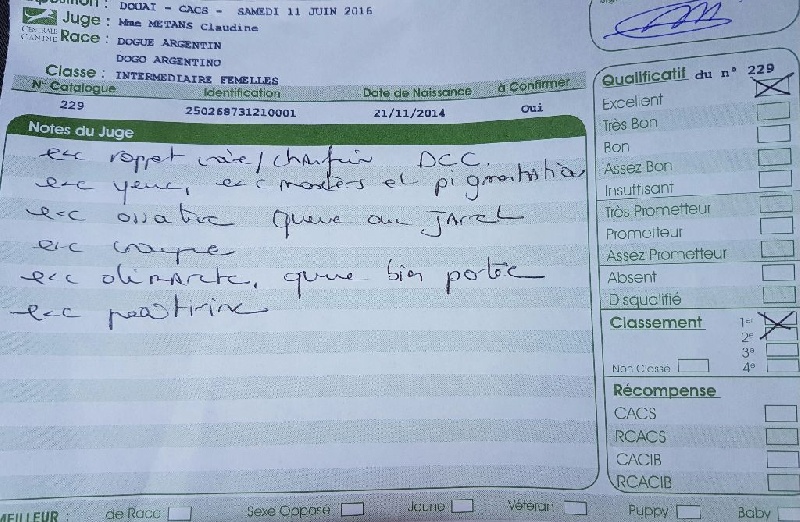 Exposition : DOUAI - CACS - SAMEDI 11 JUIN 2016
Juge : Mme METANS Claudine
CENTRALE CANINE
Race : DOGUE ARGENTIN
DOGO ARGENTINO
Classe : INTERMEDIAIRE FEMELLES
N° Catalogue Identification Date de Naissance à Confirmer
229 250268731210001 21/11/2014 Oui
Notes du Juge
exc rapport crâne/chanfrein DCC.
exc yeux, exc et pigmentation
exc ossature queue au Jarret
exc croupe
exc démarche, queue bien portée
exc poitrine
Qualificatif du n° 229
Excellent
Très Bon
Bon
Assez Bon
Insuffisant
Très Prometteur
Prometteur
Assez Prometteur
Absent
Disqualifié
Classement 1er
2e
3e
Non Classé 4e
Récompense
CACS
RCACS
CACIB
RCACIB
MEILLEUR : de Race Sexe Opposé Jeune Vétéran Puppy Baby